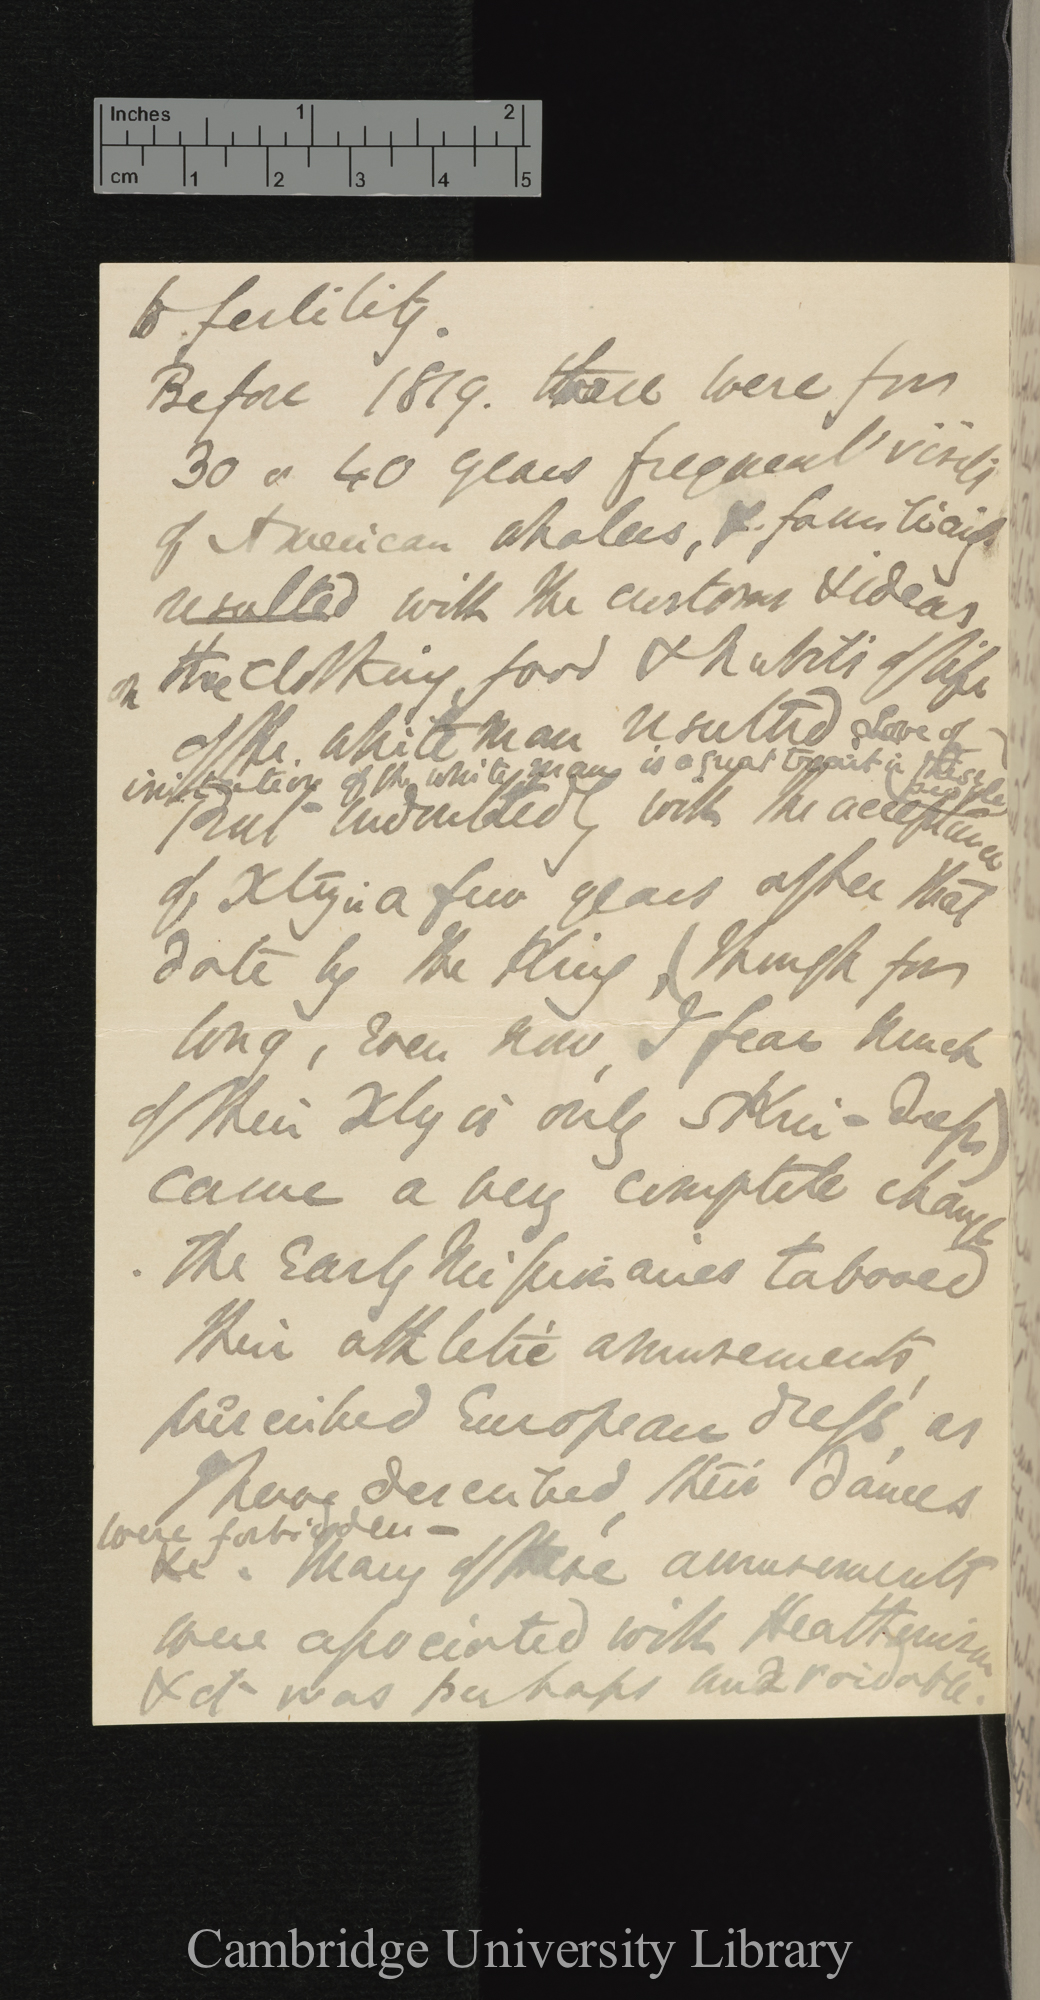 Inches 1 2
cm 1 2 3 4 5
to fertility.
Before 1819. there were for
30 or 40 years frequent visits
of American whalers, & familiarity
resulted with the customs & ideas
the clothing, food & habits of life
of the white man resulted Love of
imitation of the white man is a great trait in these people
But undoubtedly with the acceptance
of Xty in a few years after that
date by the King, (though for
long, even now, I fear much
of their Xty is only skin-deep)
came a very complete change
. The Early Missionaries tabooed
their athletic amusements,
prescribed European dress, as
I have described, their dances
were forbidden –
&c. Many of these amusements
were associated with Heathenism
& it was perhaps unavoidable.
Cambridge University Library